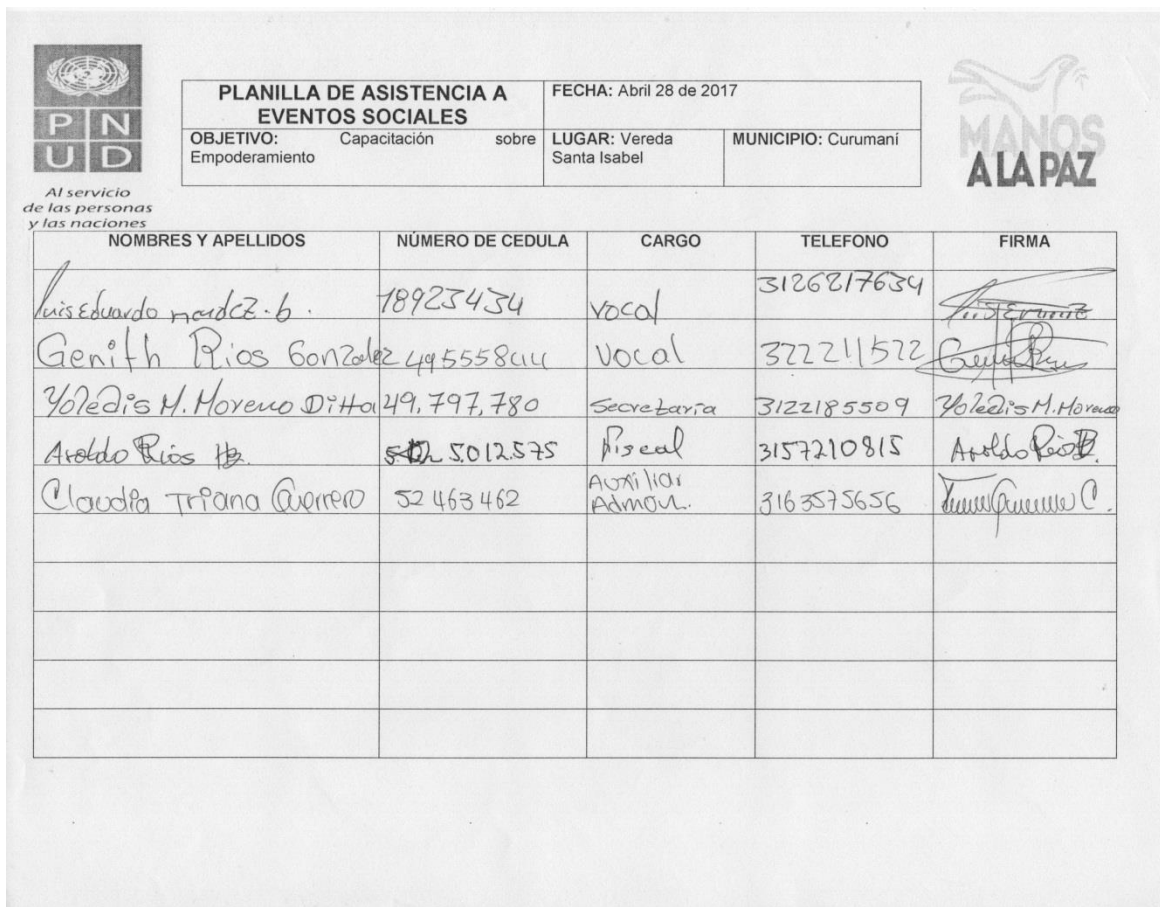 PNUD
Al servicio
de las personas
y las naciones
PLANILLA DE ASISTENCIA A
EVENTOS SOCIALES
FECHA: Abril 28 de 2017
OBJETIVO: Capacitación sobre
Empoderamiento
LUGAR: Vereda
Santa Isabel
MUNICIPIO: Curumaní
MANOS
A LA PAZ
NOMBRES Y APELLIDOS NÚMERO DE CEDULA CARGO TELEFONO FIRMA
Luis Eduardo b. 18923434 vocal 3126217634
Genith Rios Gonzalez vocal 322211522
Yoledis M. Moreno Ditta 49,797,780 Secretaria 3122185509 Yoledis M. Moreno
Aroldo Rios 5.012.575 fiscal 3157210815 Aroldo Rios
Claudia Triana Guerrero 52 463 462 Auxiliar Admon. 3163575656